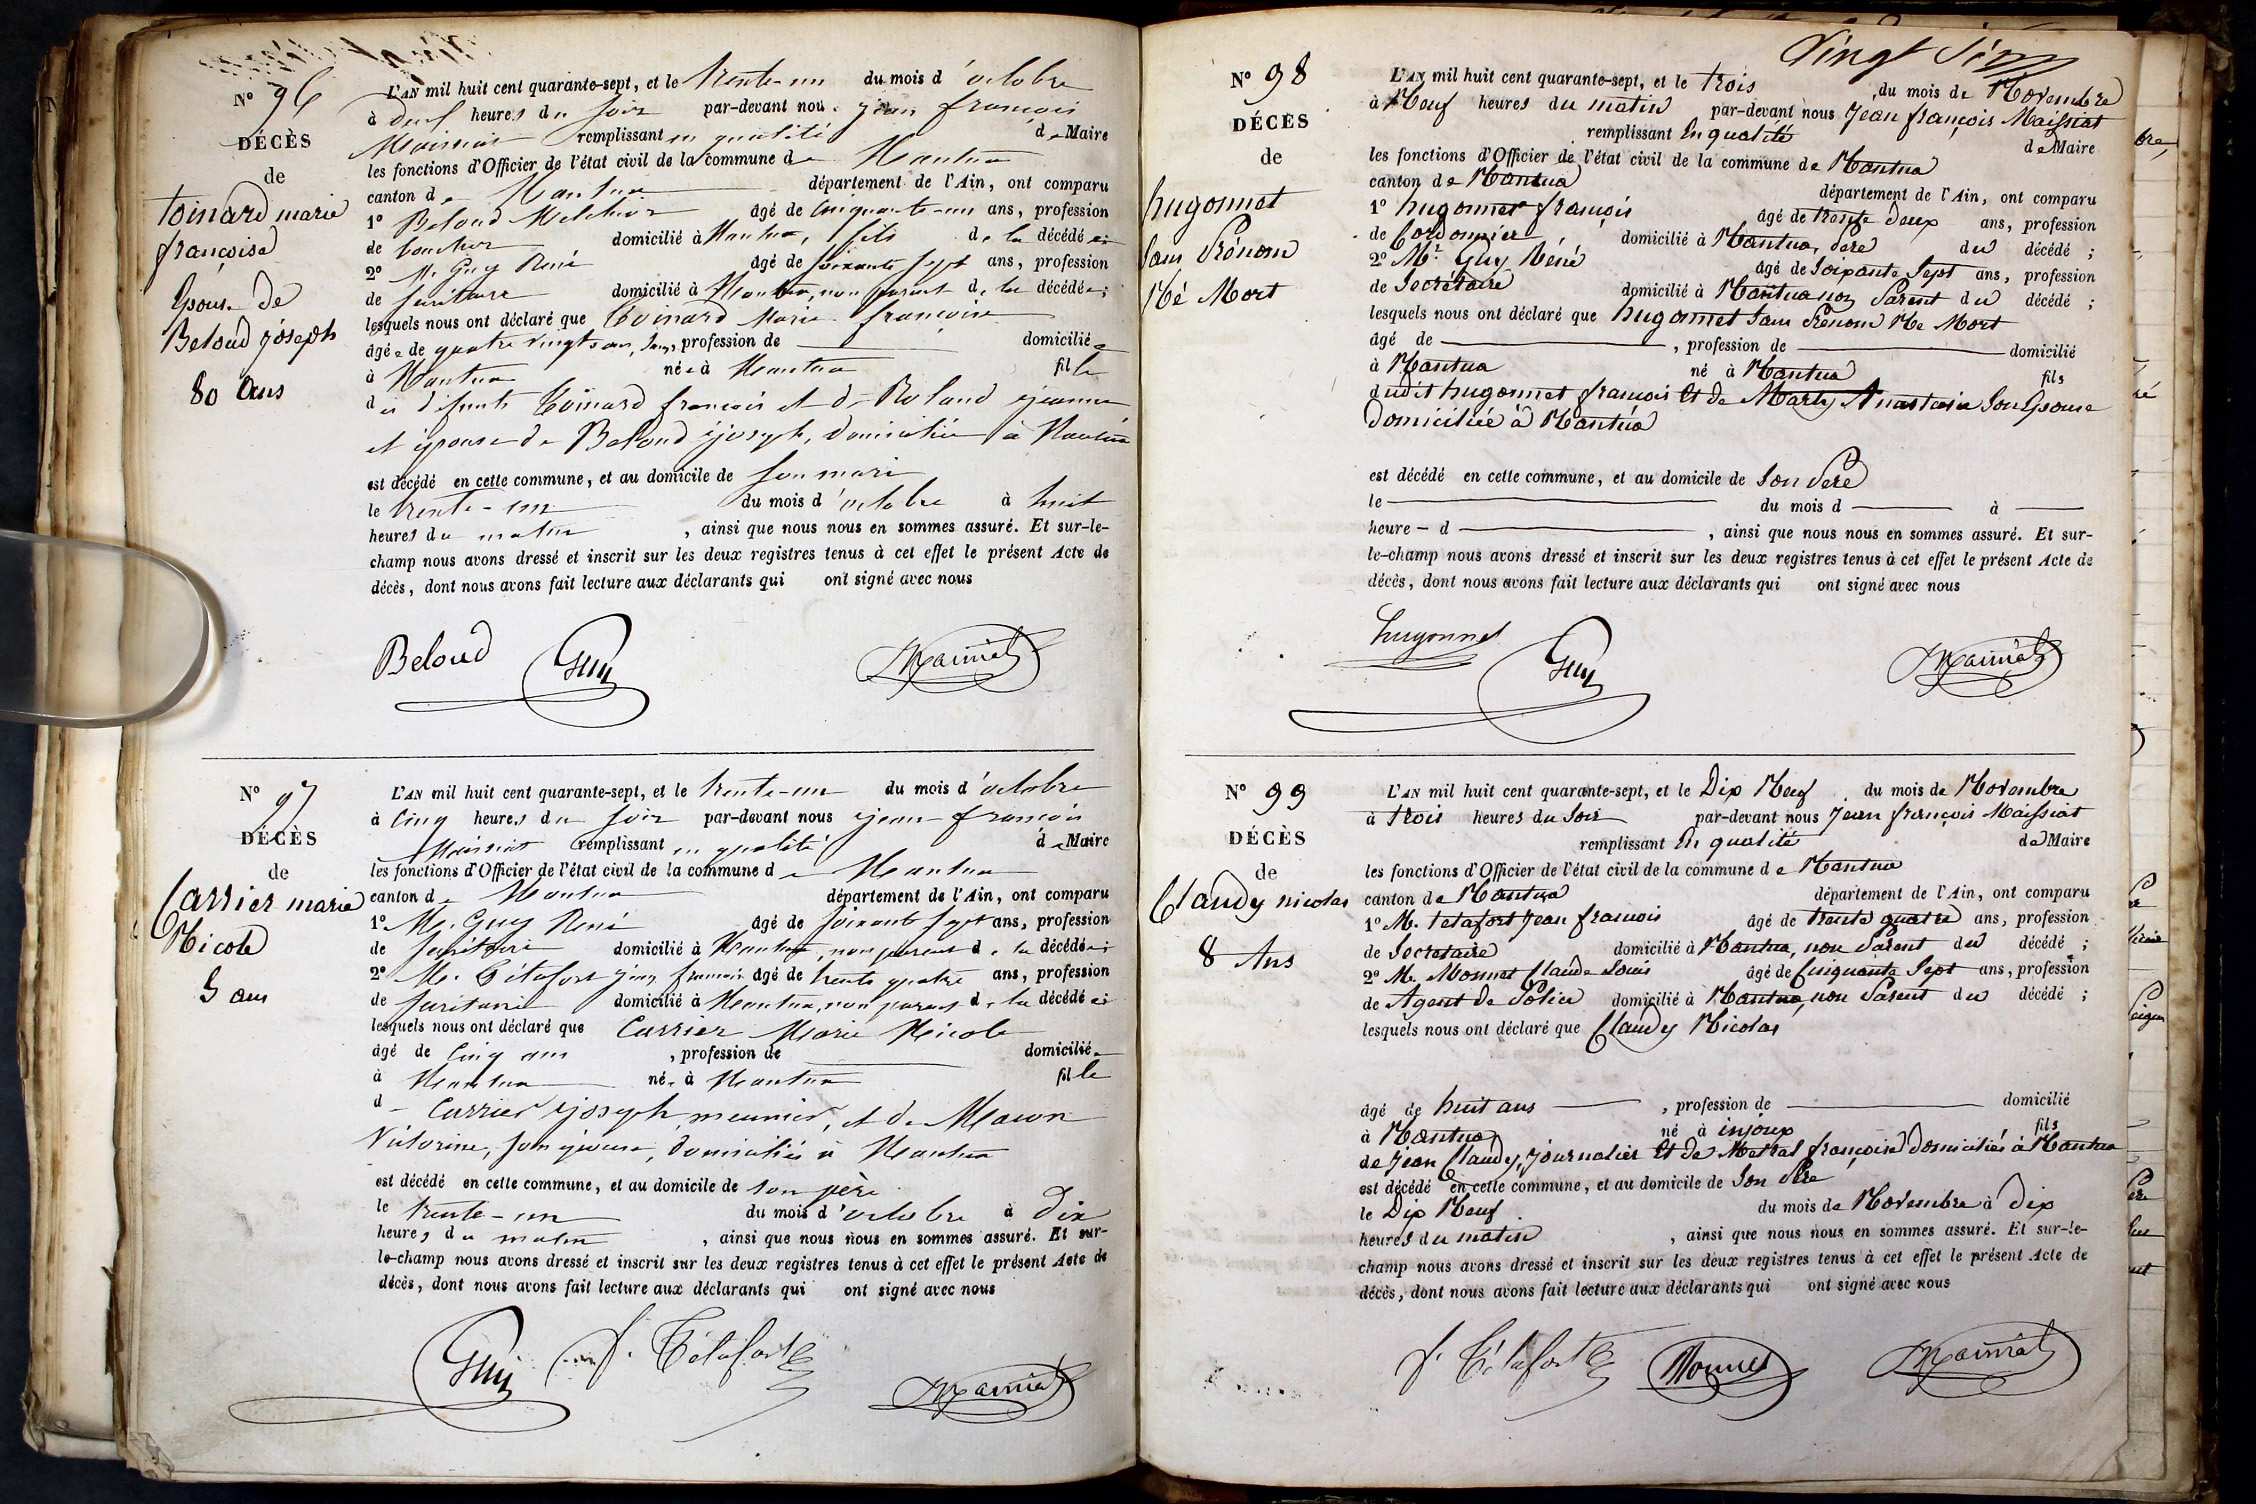 Nº 96
DÉCÈS
de
Toinard marie
françoise
Epouse de
Beloud joseph
80 Ans
L'AN mil huit cent quarante-sept, et le trente-un du mois d'octobre
à deux heures du soir par-devant nous jean françois
Maissiat remplissant en qualité de Maire
les fonctions d'Officier de l'état civil de la commune de Nantua
canton de Nantua département de l'Ain, ont comparu
1º Beloud Melchior âgé de cinquante-un ans, profession
de boucher domicilié à Nantua, fils de la décédée
2º M. Guy René âgé de soixante sept ans, profession
de secrétaire domicilié à Nantua, non parent de la décédée;
lesquels nous ont déclaré que Toinard Marie françoise
âgée de quatre vingts ans, sans, profession de domiciliée
à Nantua née à Nantua fille
des défunts Toinard françois et de Roland jeanne
et épouse de Beloud joseph, domiciliée à Nantua
est décédé en cette commune, et au domicile de son mari
le trente-un du mois d'octobre à huit
heures du matin, ainsi que nous nous en sommes assuré. Et sur-le-
champ nous avons dressé et inscrit sur les deux registres tenus à cet effet le présent Acte de
décès, dont nous avons fait lecture aux déclarants qui ont signé avec nous
Beloud Guy Maissiat
Nº 97
DÉCÈS
de
Carrier marie
Nicole
5 ans
L'AN mil huit cent quarante-sept, et le trente-un du mois d'octobre
à cinq heures du soir par-devant nous jean françois
Maissiat remplissant en qualité de Maire
les fonctions d'Officier de l'état civil de la commune de Nantua
canton de Nantua département de l'Ain, ont comparu
1º M. Guy René âgé de soixante sept ans, profession
de secrétaire domicilié à Nantua, non parent de la décédée;
2º M. Tétafort jean françois âgé de trente quatre ans, profession
de secrétaire domicilié à Nantua, non parent de la décédée
lesquels nous ont déclaré que Carrier Marie Nicole
âgé de cinq ans, profession de domiciliée
à Nantua née à Nantua fille
de Carrier joseph, meunier, et de Macon
Victorine, son épouse, domiciliés à Nantua
est décédé en cette commune, et au domicile de son père
le trente-un du mois d'octobre à dix
heures du matin, ainsi que nous nous en sommes assuré. Et sur-
le-champ nous avons dressé et inscrit sur les deux registres tenus à cet effet le présent Acte de
décès, dont nous avons fait lecture aux déclarants qui ont signé avec nous
Guy f. Tétafort Maissiat
Vingt Six
Nº 98
DÉCÈS
de
hugonnet
Sans Prénom
Né Mort
L'AN mil huit cent quarante-sept, et le trois du mois de Novembre
à Neuf heures du matin par-devant nous Jean françois Maissiat
remplissant En qualité de Maire
les fonctions d'Officier de l'état civil de la commune de Nantua
canton de Nantua département de l'Ain, ont comparu
1º hugonnet françois âgé de trente deux ans, profession
de Cordonnier domicilié à Nantua, père du décédé;
2º Mr. Guy Réné âgé de Soixante Sept ans, profession
de Secrétaire domicilié à Nantua non Parent du décédé;
lesquels nous ont déclaré que hugonnet Sans Prénom Né Mort
âgé de, profession de domicilié
à Nantua né à Nantua fils
dudit hugonnet françois Et de Marty Anastasie Son Epouse
Domiciliée à Nantua
est décédé en cette commune, et au domicile de Son Père
le du mois d à
heure d, ainsi que nous nous en sommes assuré. Et sur-
le-champ nous avons dressé et inscrit sur les deux registres tenus à cet effet le présent Acte de
décès, dont nous avons fait lecture aux déclarants qui ont signé avec nous
hugonnet Guy Maissiat
Nº 99
DÉCÈS
de
Claudy nicolas
8 Ans
L'AN mil huit cent quarante-sept, et le Dix Neuf du mois de Novembre
à trois heures du Soir par-devant nous Jean françois Maissiat
remplissant En qualité de Maire
les fonctions d'Officier de l'état civil de la commune de Nantua
canton de Nantua département de l'Ain, ont comparu
1º M. tetafort Jean françois âgé de trente quatre ans, profession
de Secretaire domicilié à Nantua, non Parent du décédé;
2º M. Monnet Claude Louis âgé de Cinquante Sept ans, profession
de Agent de Police domicilié à Nantua, non Parent du décédé;
lesquels nous ont déclaré que Claudy Nicolas
âgé de huit ans, profession de domicilié
à Nantua né à injoux fils
de Jean Claudy, Journalier Et de Metral françoise domiciliés à Nantua
est décédé en cette commune, et au domicile de Son Père
le Dix Neuf du mois de Novembre à dix
heures du matin, ainsi que nous nous en sommes assuré. Et sur-le-
champ nous avons dressé et inscrit sur les deux registres tenus à cet effet le présent Acte de
décès, dont nous avons fait lecture aux déclarants qui ont signé avec nous
f. Tétafort Monnet Maissiat